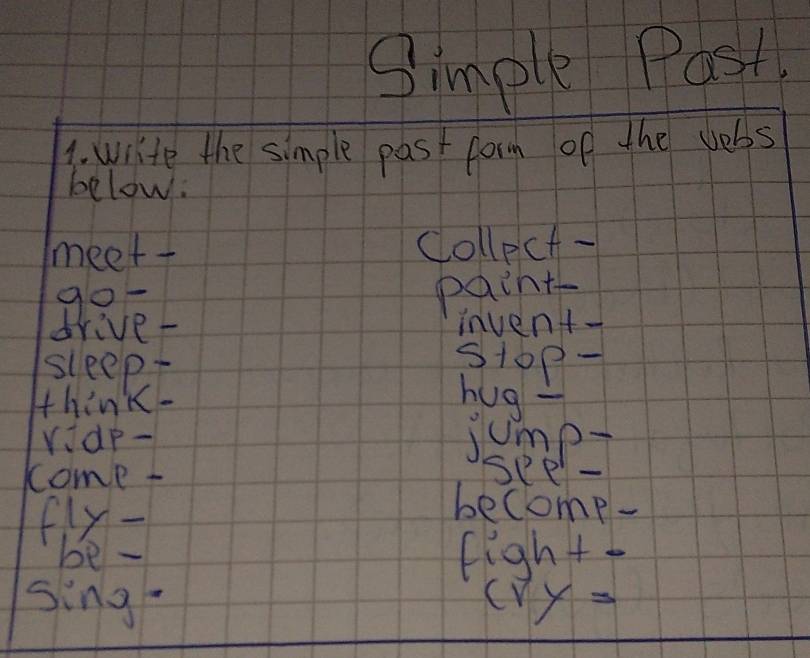 Simple Past.
1. Write the simple past form of the vebs
below:
meet -
go -
drive -
sleep -
think -
ride -
come -
fly -
be -
sing -
Collect -
paint -
invent -
stop -
hug -
jump -
see -
become -
fight -
cry -